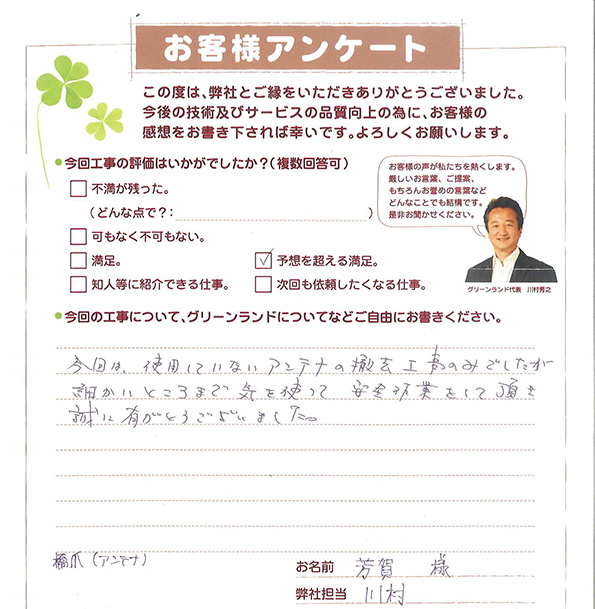 お客様アンケート
この度は、弊社とご縁をいただきありがとうございました。
今後の技術及びサービスの品質向上の為に、お客様の
感想をお書き下されば幸いです。よろしくお願いします。
今回工事の評価はいかがでしたか?(複数回答可)
不満が残った。
(どんな点で?: )
可もなく不可もない。
満足。
予想を超える満足。
知人等に紹介できる仕事。
次回も依頼したくなる仕事。
お客様の声が私たちを熱くします。
厳しいお言葉、ご提案、
もちろんお誉めの言葉など
どんなことでも結構です。
是非お聞かせください。
グリーンランド代表 川村秀之
今回の工事について、グリーンランドについてなどご自由にお書きください。
今回は、使用していないアンテナの撤去工事のみでしたが
細かいところまで気を使って 安全作業をして頂き
誠に有がとうございました。
橋爪(アンテナ)
お名前 芳賀 様
弊社担当 川村